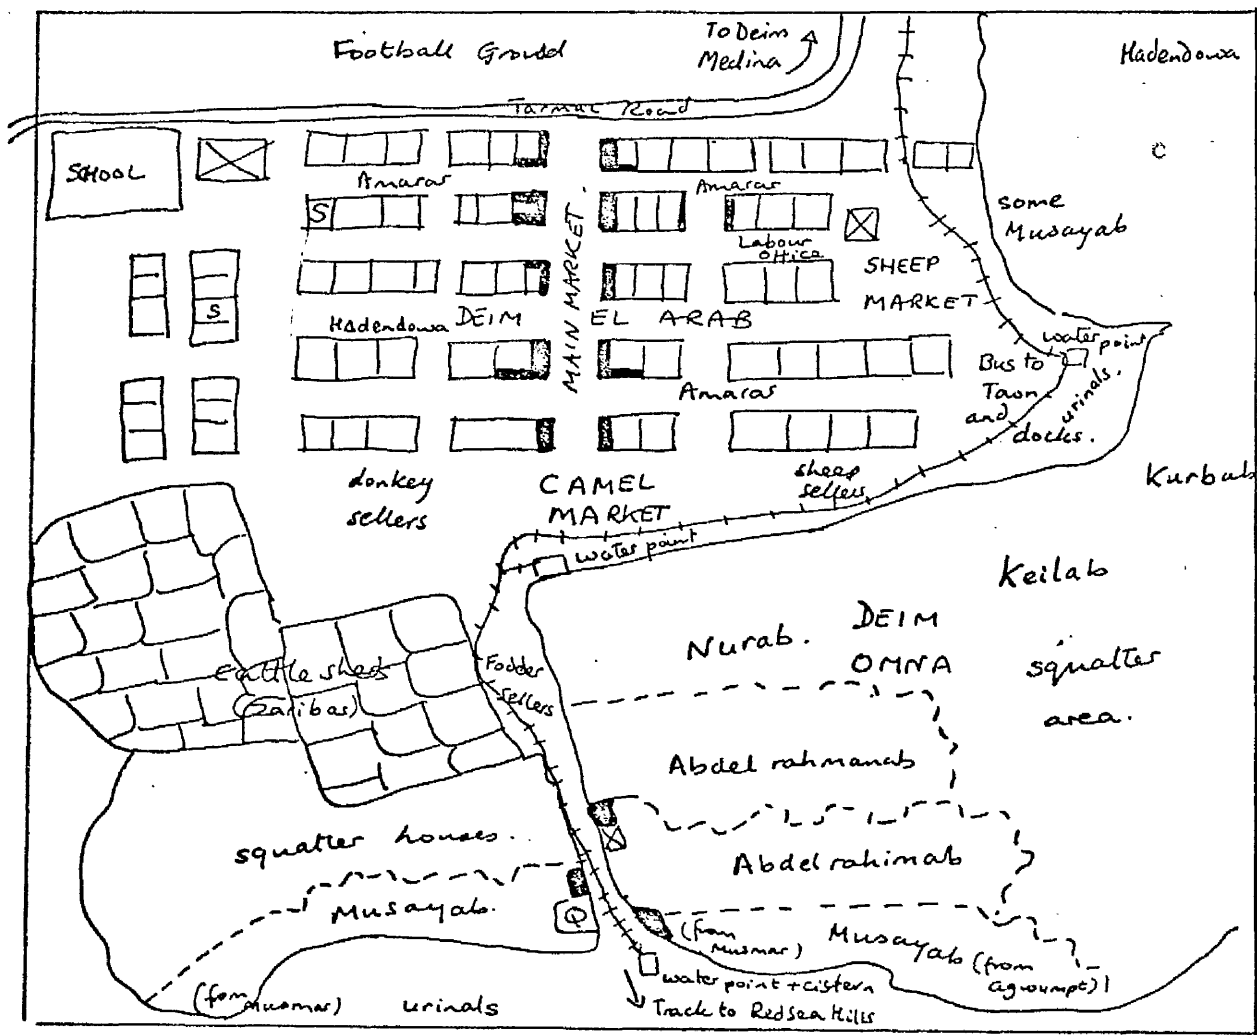 Football Ground
To Deim
Medina
Hadendowa
Tarmac Road
SCHOOL
C
Amaras
Amaras
S
some
Musayab
Labour
Office
SHEEP
MARKET
MAIN MARKET.
S
Hadendowa
DEIM EL ARAB
water point
Bus to
Town
and
docks.
urinals.
Amaras
donkey
sellers
CAMEL
MARKET
sheep
sellers
Kurbab
water point
Keilab
Nurab.
DEIM
OMNA
squatter
area.
Fodder
sellers
Cattle sheds
(Zaribas)
Abdel rahmanab
squatter houses.
Abdelrahimab
Musayab.
Q
(from
Musmar)
Musayab (from
agwumpt)
(from musmar)
urinals
water point + cistern
Track to Red Sea Hills